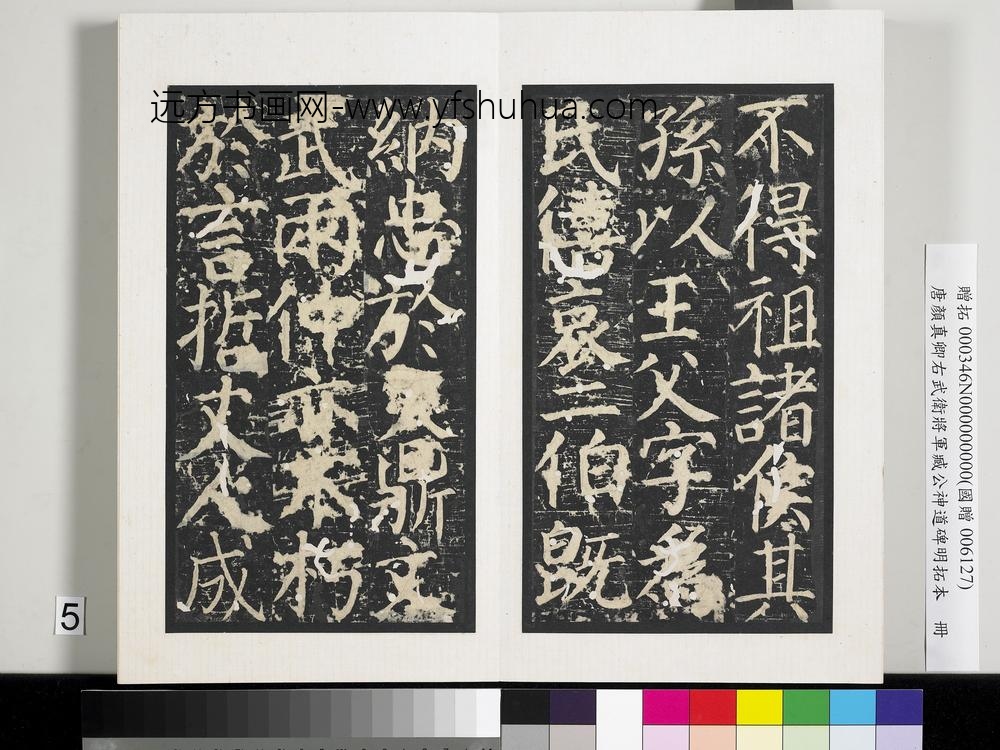 远方书画网-www.yfshuhua.com
不得祖諸侯其
孫以王父字為
氏僖哀二伯既
納忠於鼎文
武兩仲亦不朽
於言哲丈人成
贈拓 000346N000000000(國贈 006127)
唐顏真卿右武衛將軍臧公神道碑明拓本 冊
5